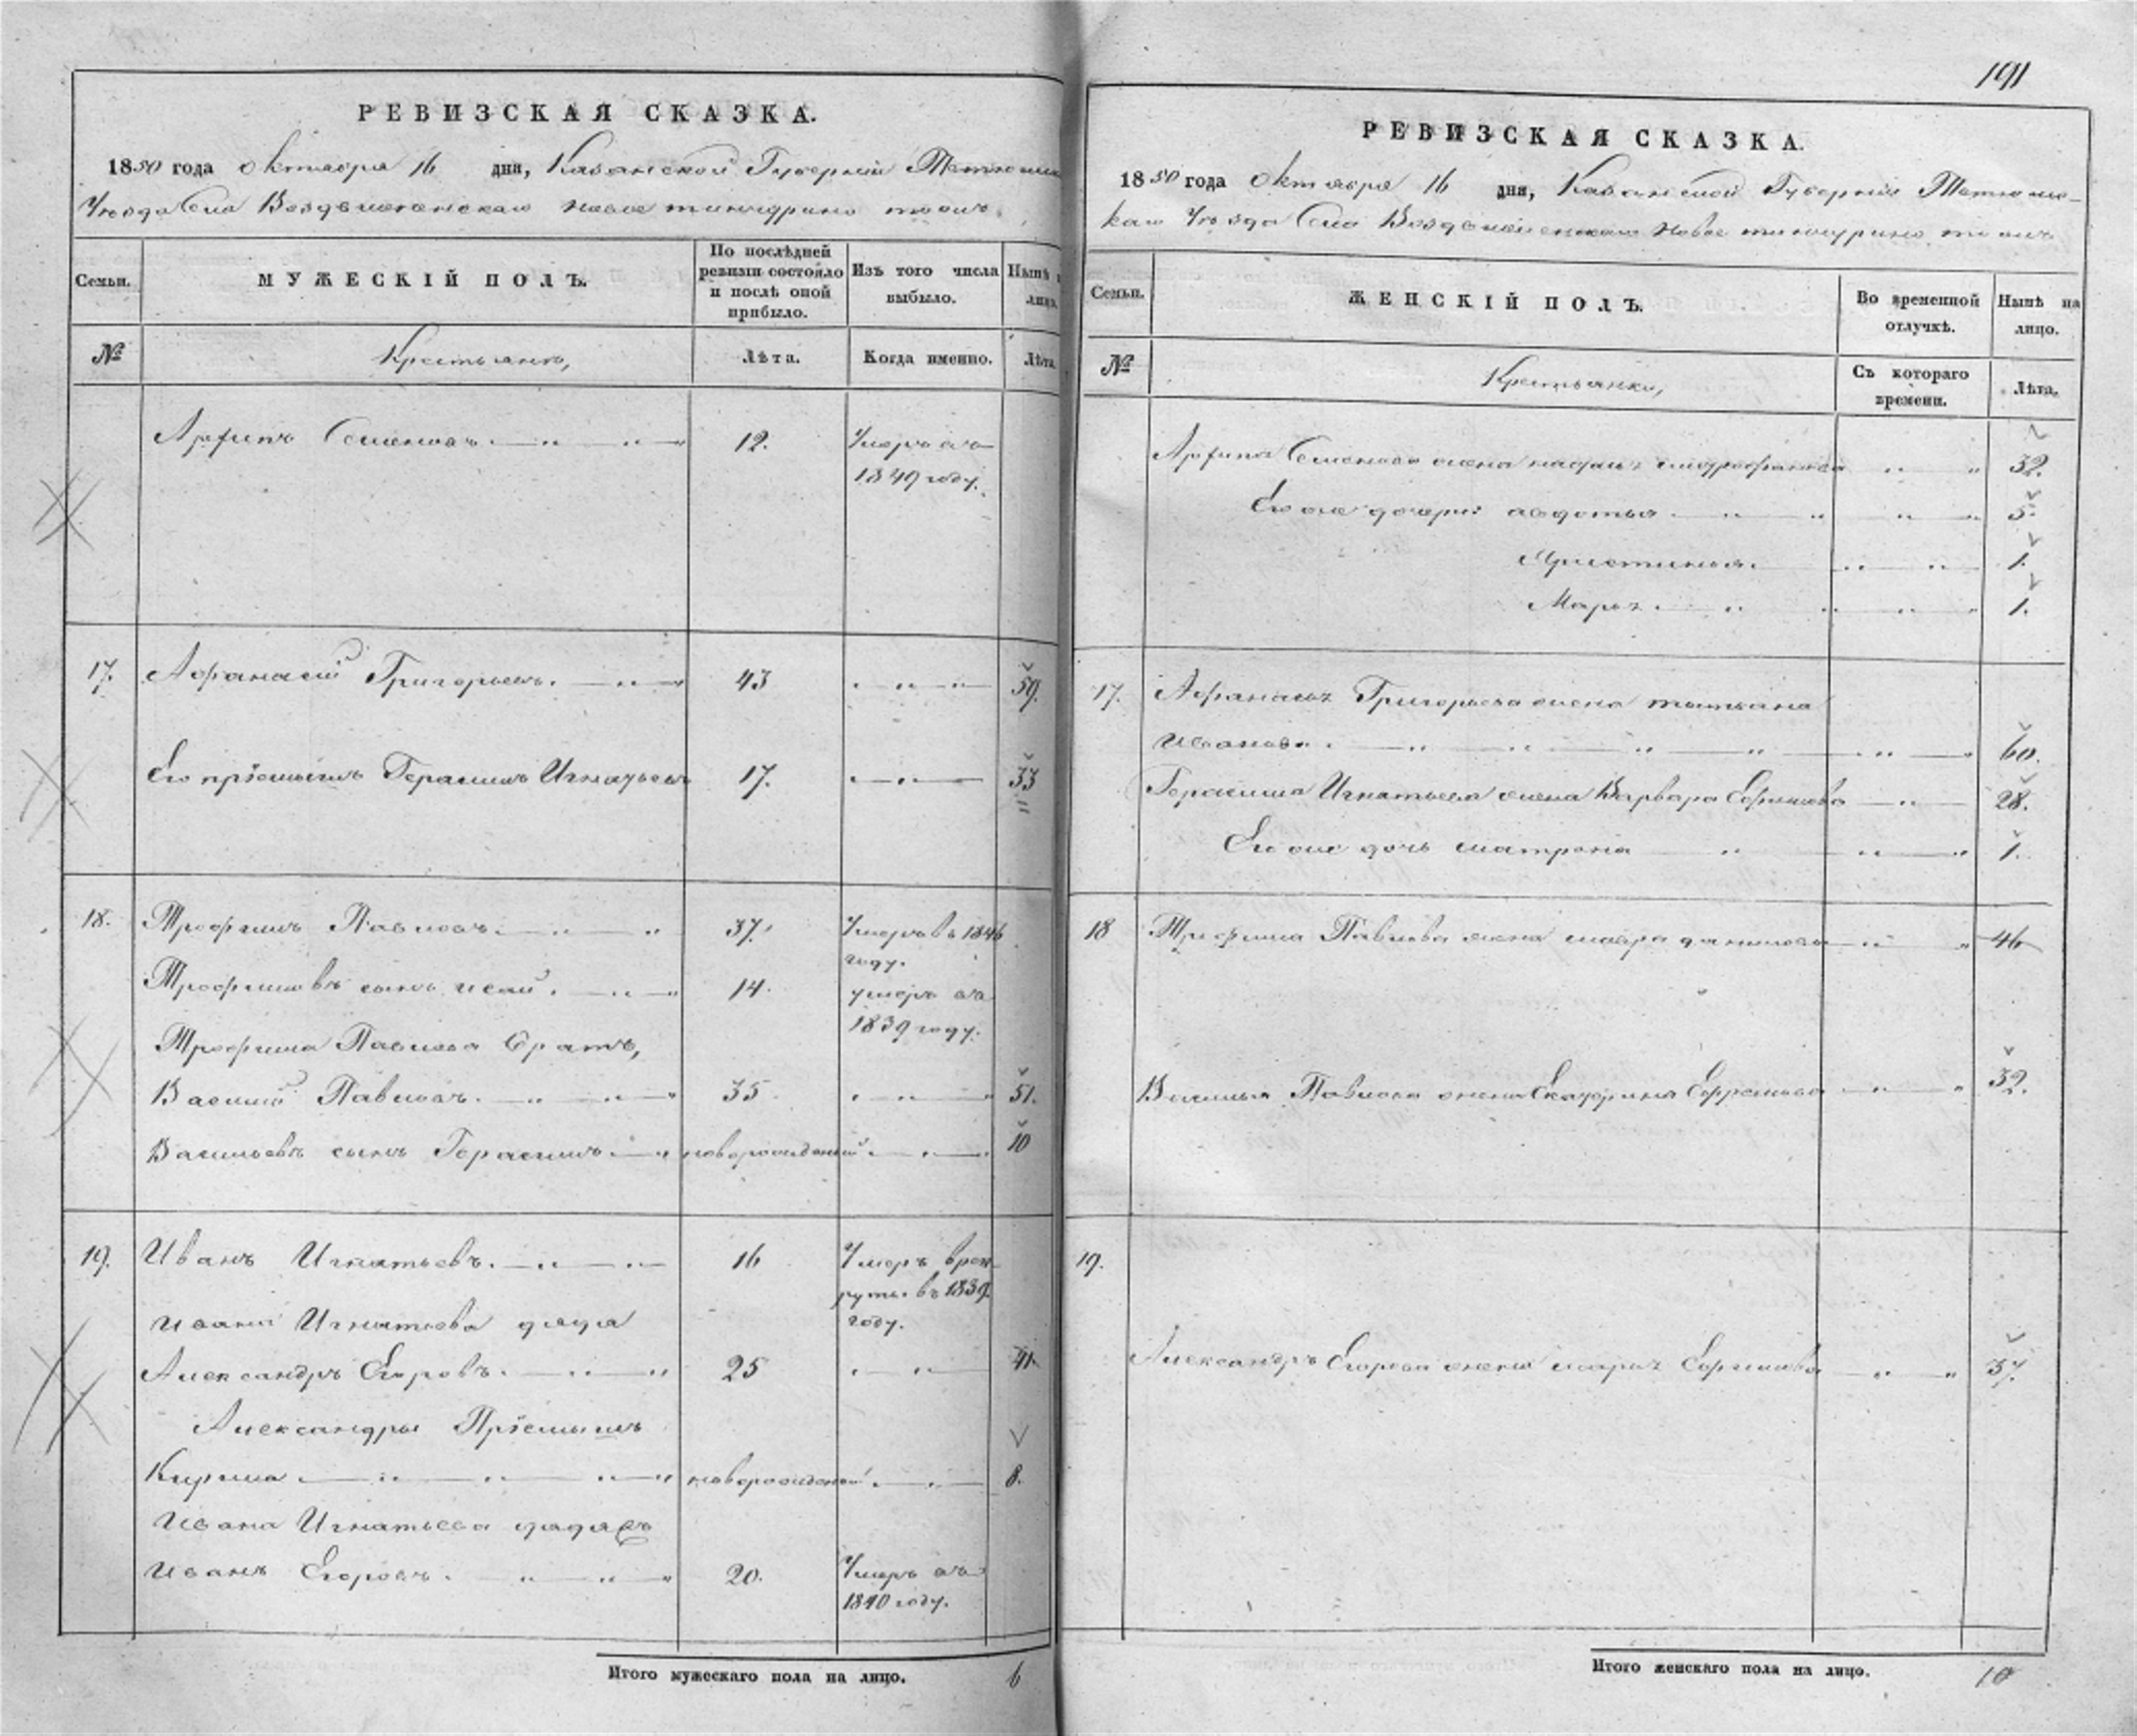 РЕВИЗСКАЯ СКАЗКА.
1850 года октября 16 дня, Казанской Губернии
Уезда Села Воздвиженскаго новое тинчурино
Семьи.
МУЖЕСКІЙ ПОЛЪ.
По послѣдней ревизіи состояло и послѣ оной прибыло.
Изъ того числа выбыло.
Нынѣ
лицо.
№
Крестьянъ,
Лѣта.
Когда именно.
Лѣта.
Архипъ Семеновъ 12. Умеръ въ
1849 году.
17. Афанасій Григорьевъ. 43 59.
Его пріемышъ Герасимъ Игнатьевъ 17. 33
18. Трофимъ Павловъ. 37. Умеръ въ 1846
году.
Трофимовъ сынъ исай. 14. умеръ въ
1839 году.
Трофима Павлова братъ,
Василій Павловъ. 35 51.
Васильевъ сынъ Герасимъ новорожденный 10
19. Иванъ Игнатьевъ. 16 Умеръ врек
руты въ 1839
году.
ивана Игнатьева дядя
Александръ Егоровъ. 25 41.
Александры Пріемышъ
Кирила новорожденный 8.
Ивана Игнатьева дядя
иванъ Егоровъ. 20. Умеръ въ
1840 году.
Итого мужескаго пола на лицо. 6
191
РЕВИЗСКАЯ СКАЗКА.
1850 года октября 16 дня, Казанской Губерніи Тетюшс-
каго Уезда Села Воздвиженскаго новое тинчурино
Семьи.
ЖЕНСКІЙ ПОЛЪ.
Во временной отлучкѣ.
Нынѣ на лицо.
№
Крестьянки,
Съ котораго времени.
Лѣта.
Архипа Семенова жена 32.
Его же дочери авдотья 5.
Христинья. 1.
Марья. 1.
17. Афанасья Григорьева жена татьяна
иванова. 60.
Герасима Игнатьева жена Варвара Ефимова 28.
Его же дочь матрона 1.
18 Трофима Павлова жена мавра данилова 46
Василья Павлова жена Екатерина Ефремова 32.
19.
Александръ Егорова жена марья Ефимова 37.
Итого женскаго пола на лицо. 10